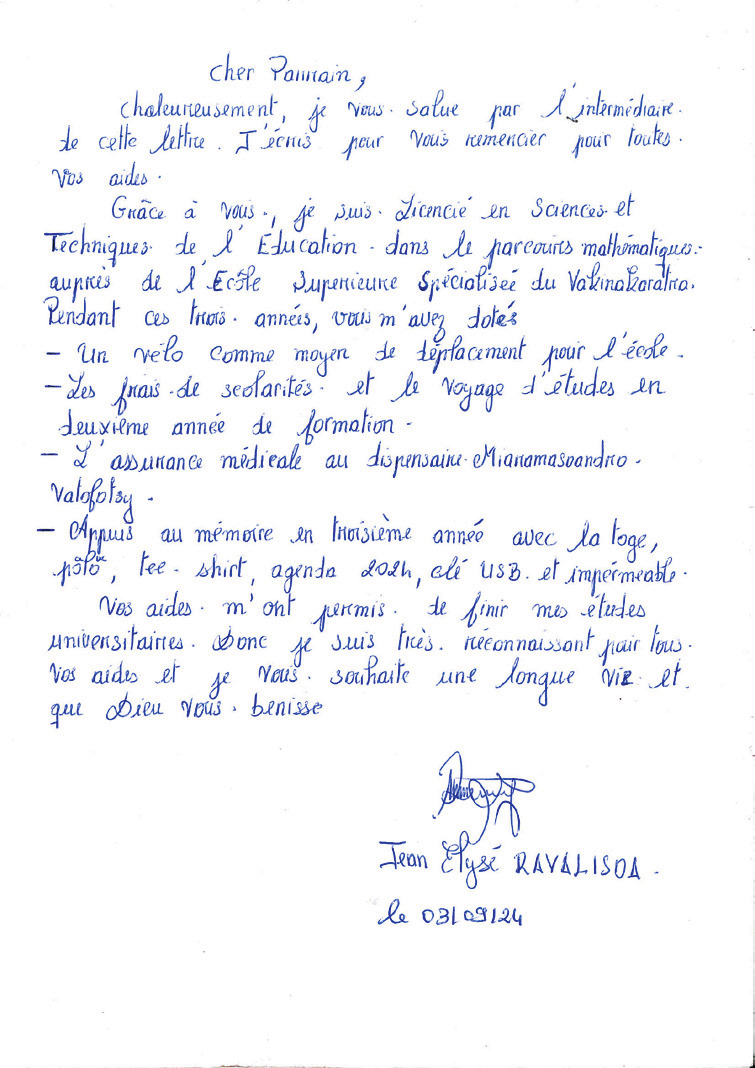 Cher Parrain,
Chaleureusement, je vous salue par l'intermédiaire
de cette lettre. J'écris pour vous remercier pour toutes
vos aides.
Grâce à vous, je suis Licencié en Sciences et
Techniques de l'Éducation dans le parcours mathématiques
auprès de l'École Superieure Spécialiseé du Vakinakaratra.
Pendant ces trois années, vous m'avez dotés
- Un vélo comme moyen de déplacement pour l'école.
- Les frais de scolarités et le voyage d'études en
deuxième année de formation.
- L'assurance médicale au dispensaire Miaramasoandro
Vatofotsy.
- Appuis au mémoire en troisième année avec la toge,
tee-shirt, agenda 2024, clé USB et impérmeable.
Vos aides m'ont permis de finir mes études
universitaires. Donc je suis très réconnaissant pour tous
vos aides et je vous souhaite une longue vie et
que Dieu vous benisse
Jean Elysé RAVALISOA.
le 03/09/24